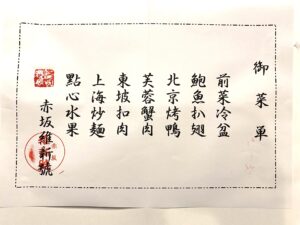 御菜單
前菜冷盆
鮑魚扒翅
北京烤鴨
芙蓉蟹肉
東坡扣肉
上海炒麺
點心水果
赤坂維新號